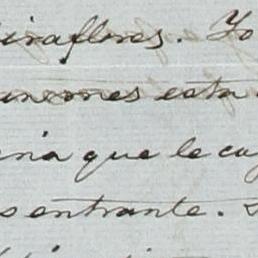 iraflores. Yo
anzones esta
ina que le ca
s entrante.